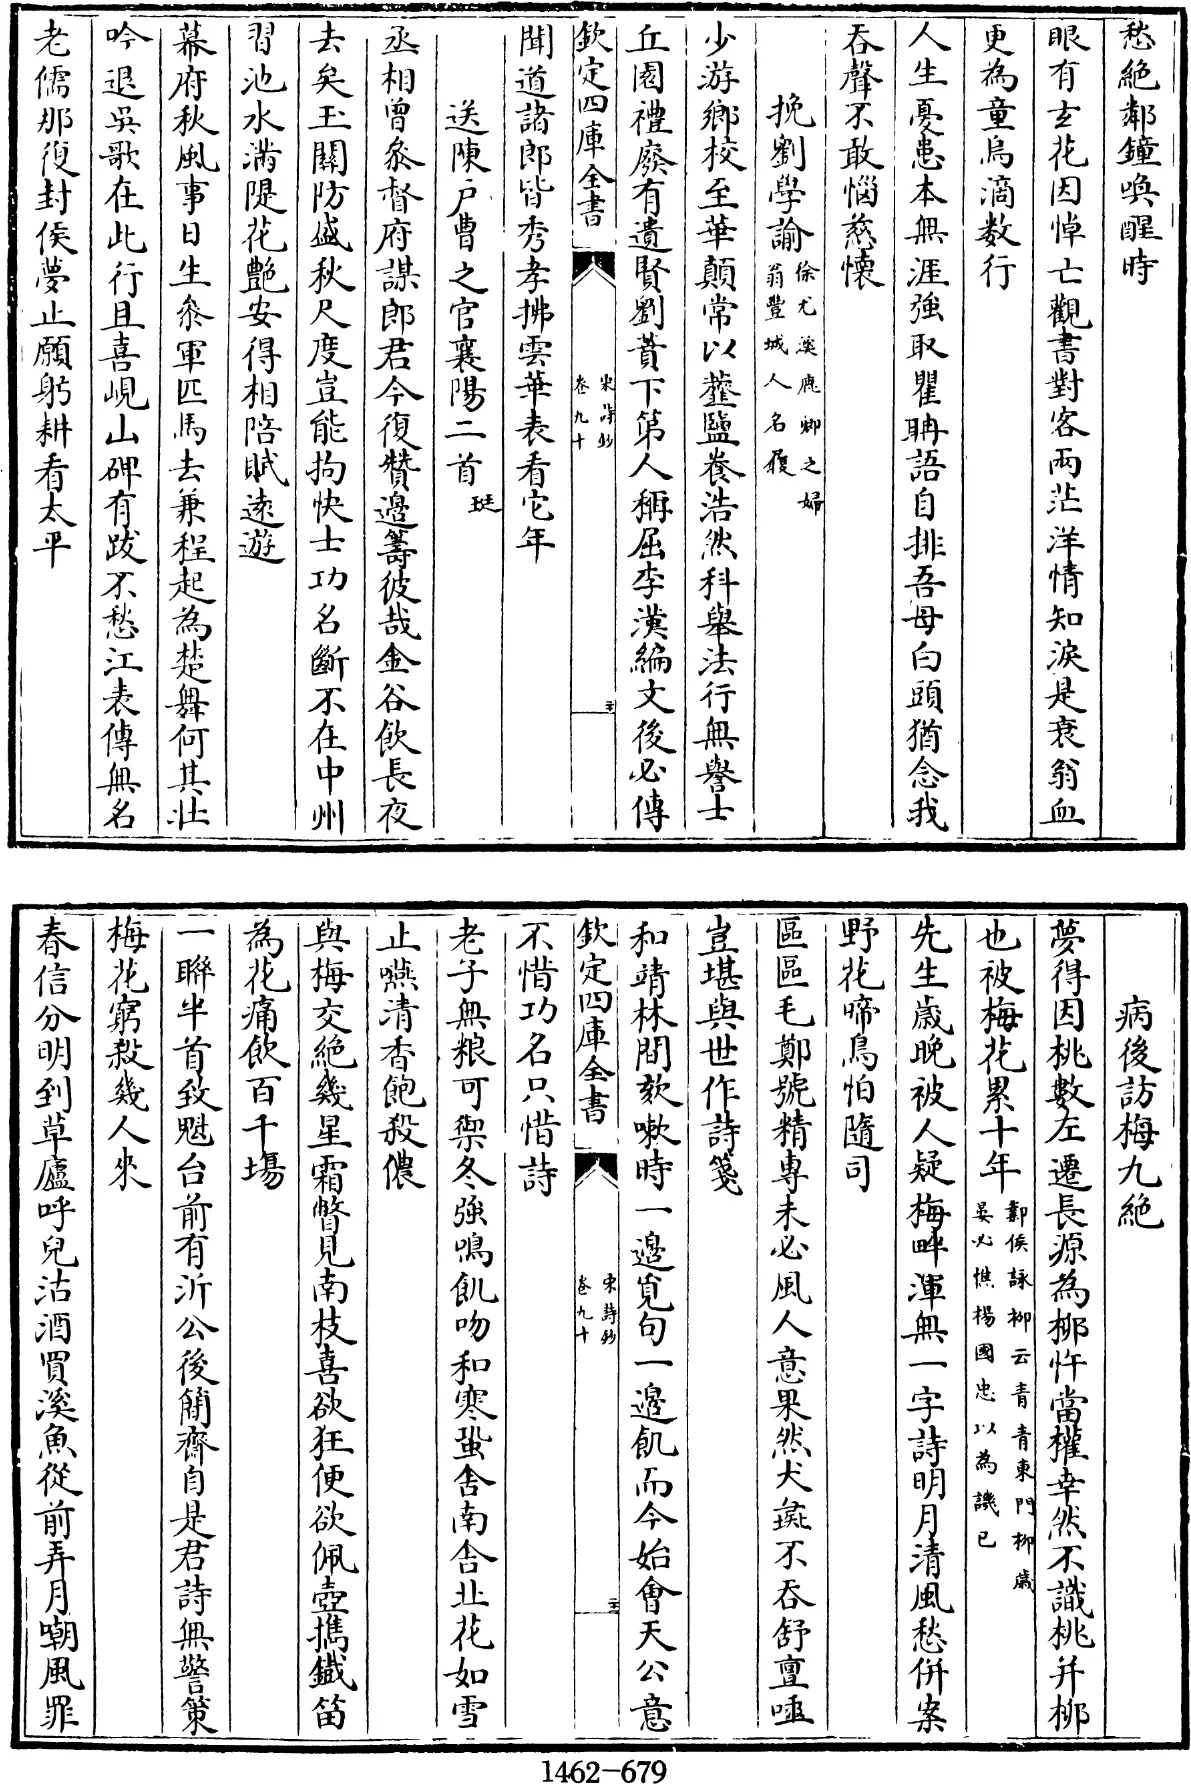 愁絶鄰鐘喚醒時
眼有玄花因悼亡觀書對客兩茫洋情知淚是衰翁血
更為童烏滴數行
人生憂患本無涯強取瞿聃語自排吾母白頭猶念我
吞聲不敢惱慈懷
挽劉學諭
徐尤溪鹿卿之婦
翁豐城人名履
少游鄉校至華顛常以虀鹽養浩然科舉法行無譽士
丘園禮廢有遺賢劉蕡下第人稱屈李漢編文後必傳
欽定四庫全書
宋詩鈔
卷九十
聞道諸郎皆秀孝拂雲華表看它年
送陳戶曹之官襄陽二首
珽
丞相曾叅督府謀郎君今復贊邊籌彼哉金谷飲長夜
去矣玉關防盛秋尺度豈能拘快士功名斷不在中州
習池水滿隄花艶安得相陪賦遠遊
幕府秋風事日生叅軍匹馬去兼程起為楚舞何其壯
吟退吳歌在此行且喜峴山碑有跋不愁江表傳無名
老儒那復封侯夢止願躬耕看太平
病後訪梅九絶
夢得因桃數左遷長源為柳忤當權幸然不識桃并柳
也被梅花累十年
鄴侯詠柳云青青東門柳歲
晏必憔楊國忠以為譏已
先生歲晚被人疑梅畔渾無一字詩明月清風愁併案
野花啼鳥怕隨司
區區毛鄭號精專未必風人意果然犬彘不吞舒亶唾
豈堪與世作詩箋
和靖林間欬嗽時一邊覓句一邊飢而今始會天公意
欽定四庫全書
宋詩鈔
卷九十
不惜功名只惜詩
老子無粮可禦冬強鳴飢吻和寒蛩舍南舍北花如雪
止嚥清香飽殺儂
與梅交絶幾星霜瞥見南枝喜欲狂便欲佩壺擕鐵笛
為花痛飲百千塲
一聯半首致魁台前有沂公後簡齋自是君詩無警策
梅花窮殺幾人來
春信分明到草廬呼兒沽酒買溪魚從前弄月嘲風罪
1462-679